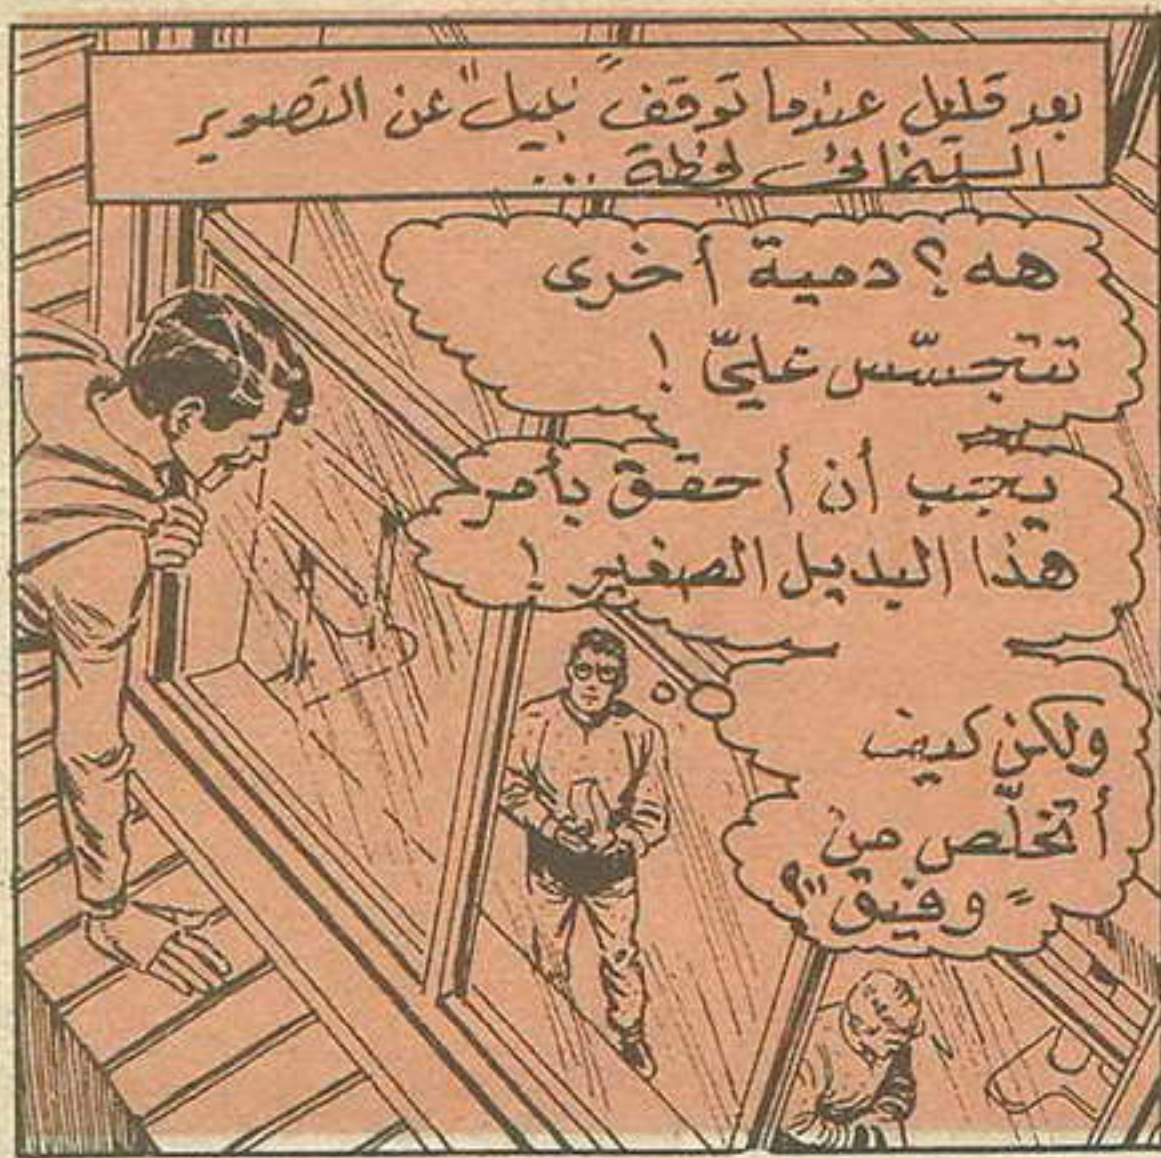 بعد قليل عندما توقف "نبيل" عن التصوير
السينمائي لحظة ...
هه؟ دمية أخرى
تتجسّس عليّ!
يجب أن أحقق بأمر
هذا البديل الصغير!
ولكن كيف
أتخلّص من
"وفيق"؟